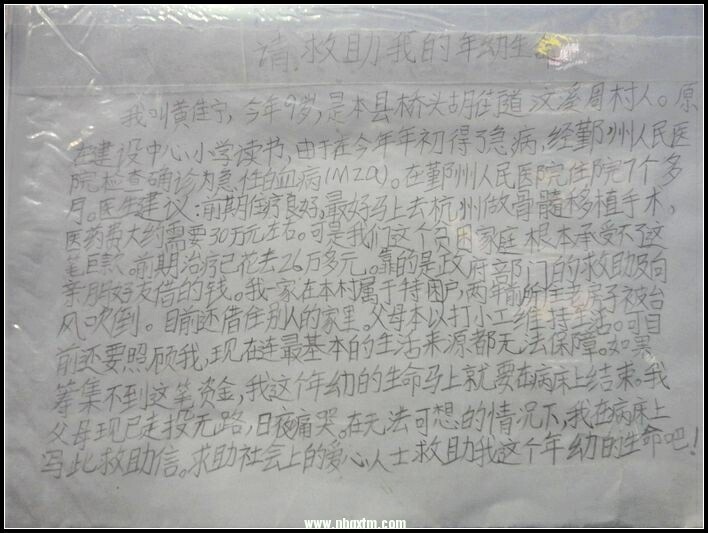 请救助我的年幼生命
我叫黄佳宁,今年9岁,是本县桥头胡街道汶溪周村人。原
在建设中心小学读书,由于在今年年初得了急病,经鄞州人民医
院检查确诊为急性白血病(M2a)。在鄞州人民医院住院7个多
月。医生建议:前期治疗良好,最好马上去杭州做骨髓移植手术,
医药费大约需要30万元左右。可是我们这个贫困家庭根本承受不了这
笔巨款。前期治疗已花去26万多元。靠的是政府部门的救助及向
亲朋好友借的钱。我一家在本村属于特困户,两年前所住老房子被台
风吹倒。目前还借住别人的家里。父母本以打小工维持生活。可目
前还要照顾我,现在连最基本的生活来源都无法保障。如果
筹集不到这笔资金,我这个年幼的生命马上就要在病床上结束。我
父母现已走投无路,日夜痛哭。在无法可想的情况下,我在病床上
写此救助信。求助社会上的爱心人士救助我这个年幼的生命吧!
www.nhgxtm.com